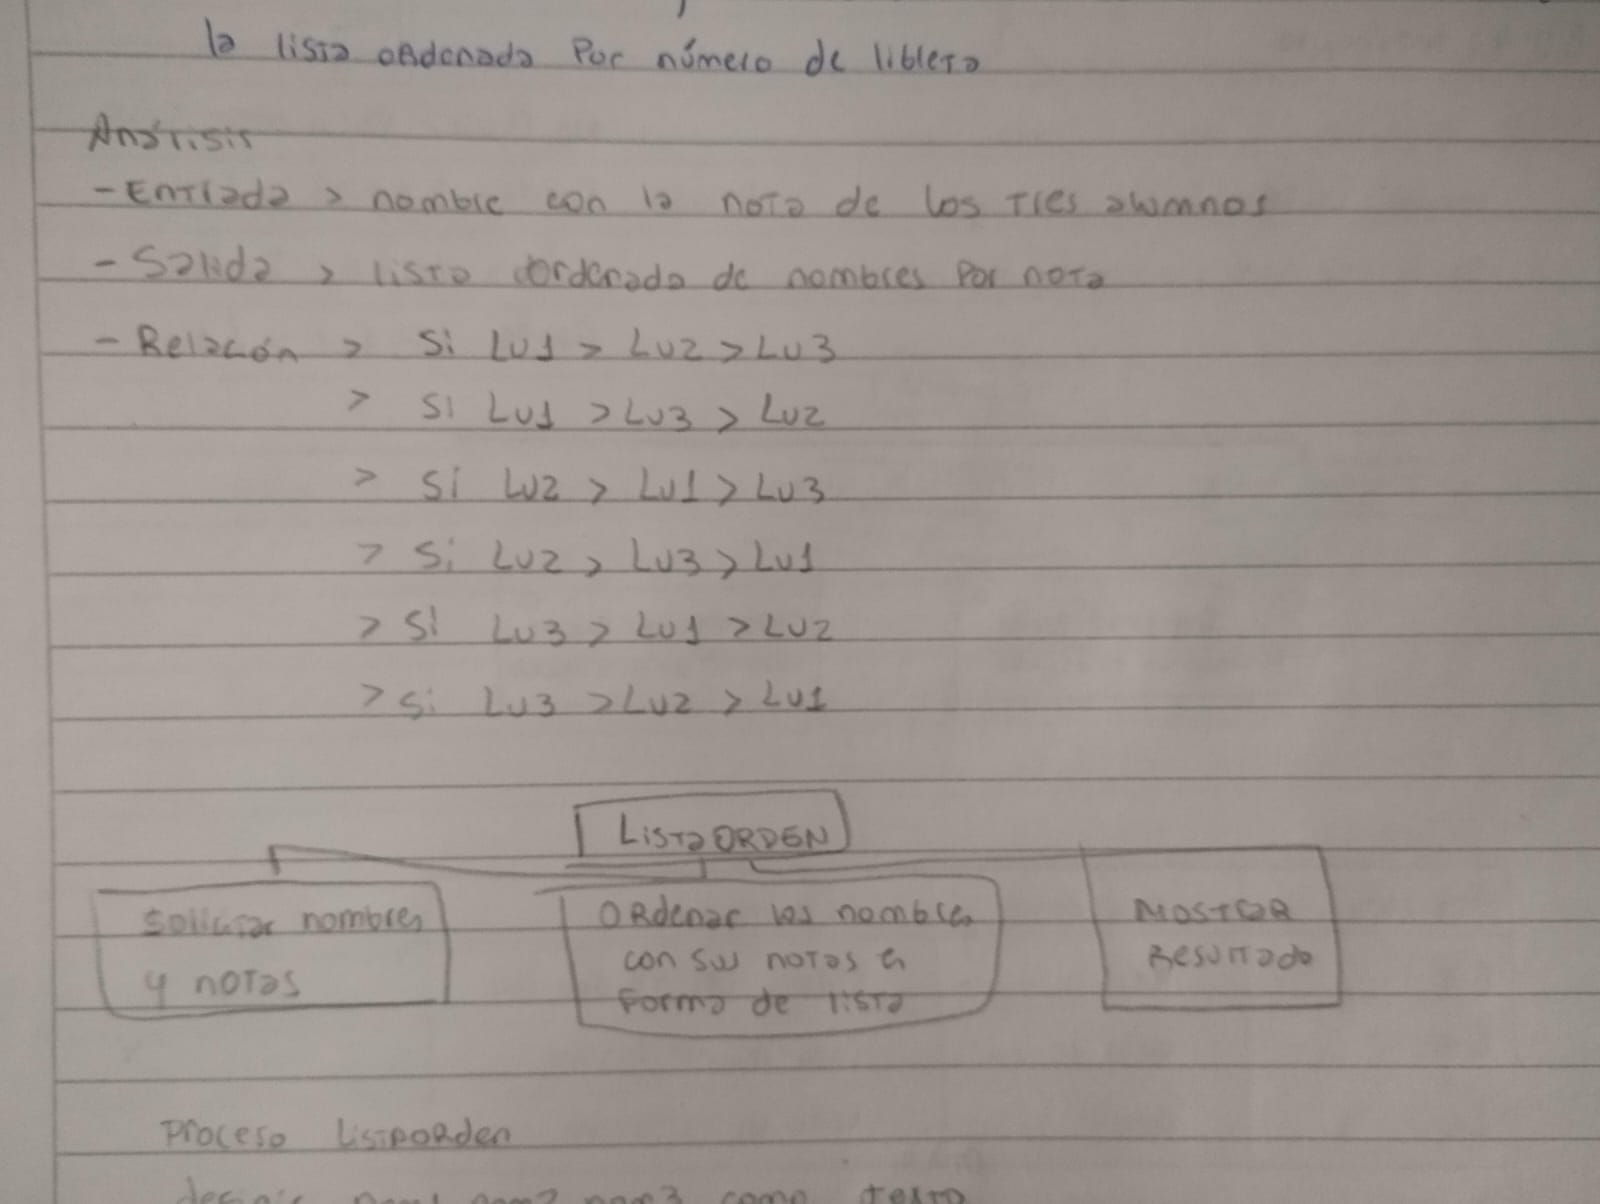 la lista ordenada por número de libreta
Análisis
- Entrada > nombre con la nota de los tres alumnos
- Salida > lista ordenada de nombres por nota
- Relación > Si LU1 > LU2 > LU3
> Si LU1 > LU3 > LU2
> Si LU2 > LU1 > LU3
> Si LU2 > LU3 > LU1
> Si LU3 > LU1 > LU2
> Si LU3 > LU2 > LU1
Lista ORDEN
Solicitar nombres
y notas
Ordenar los nombres
con sus notas en
forma de lista
Mostrar
Resultado
Proceso ListaOrden
definir nom1 nom2 nom3 como texto